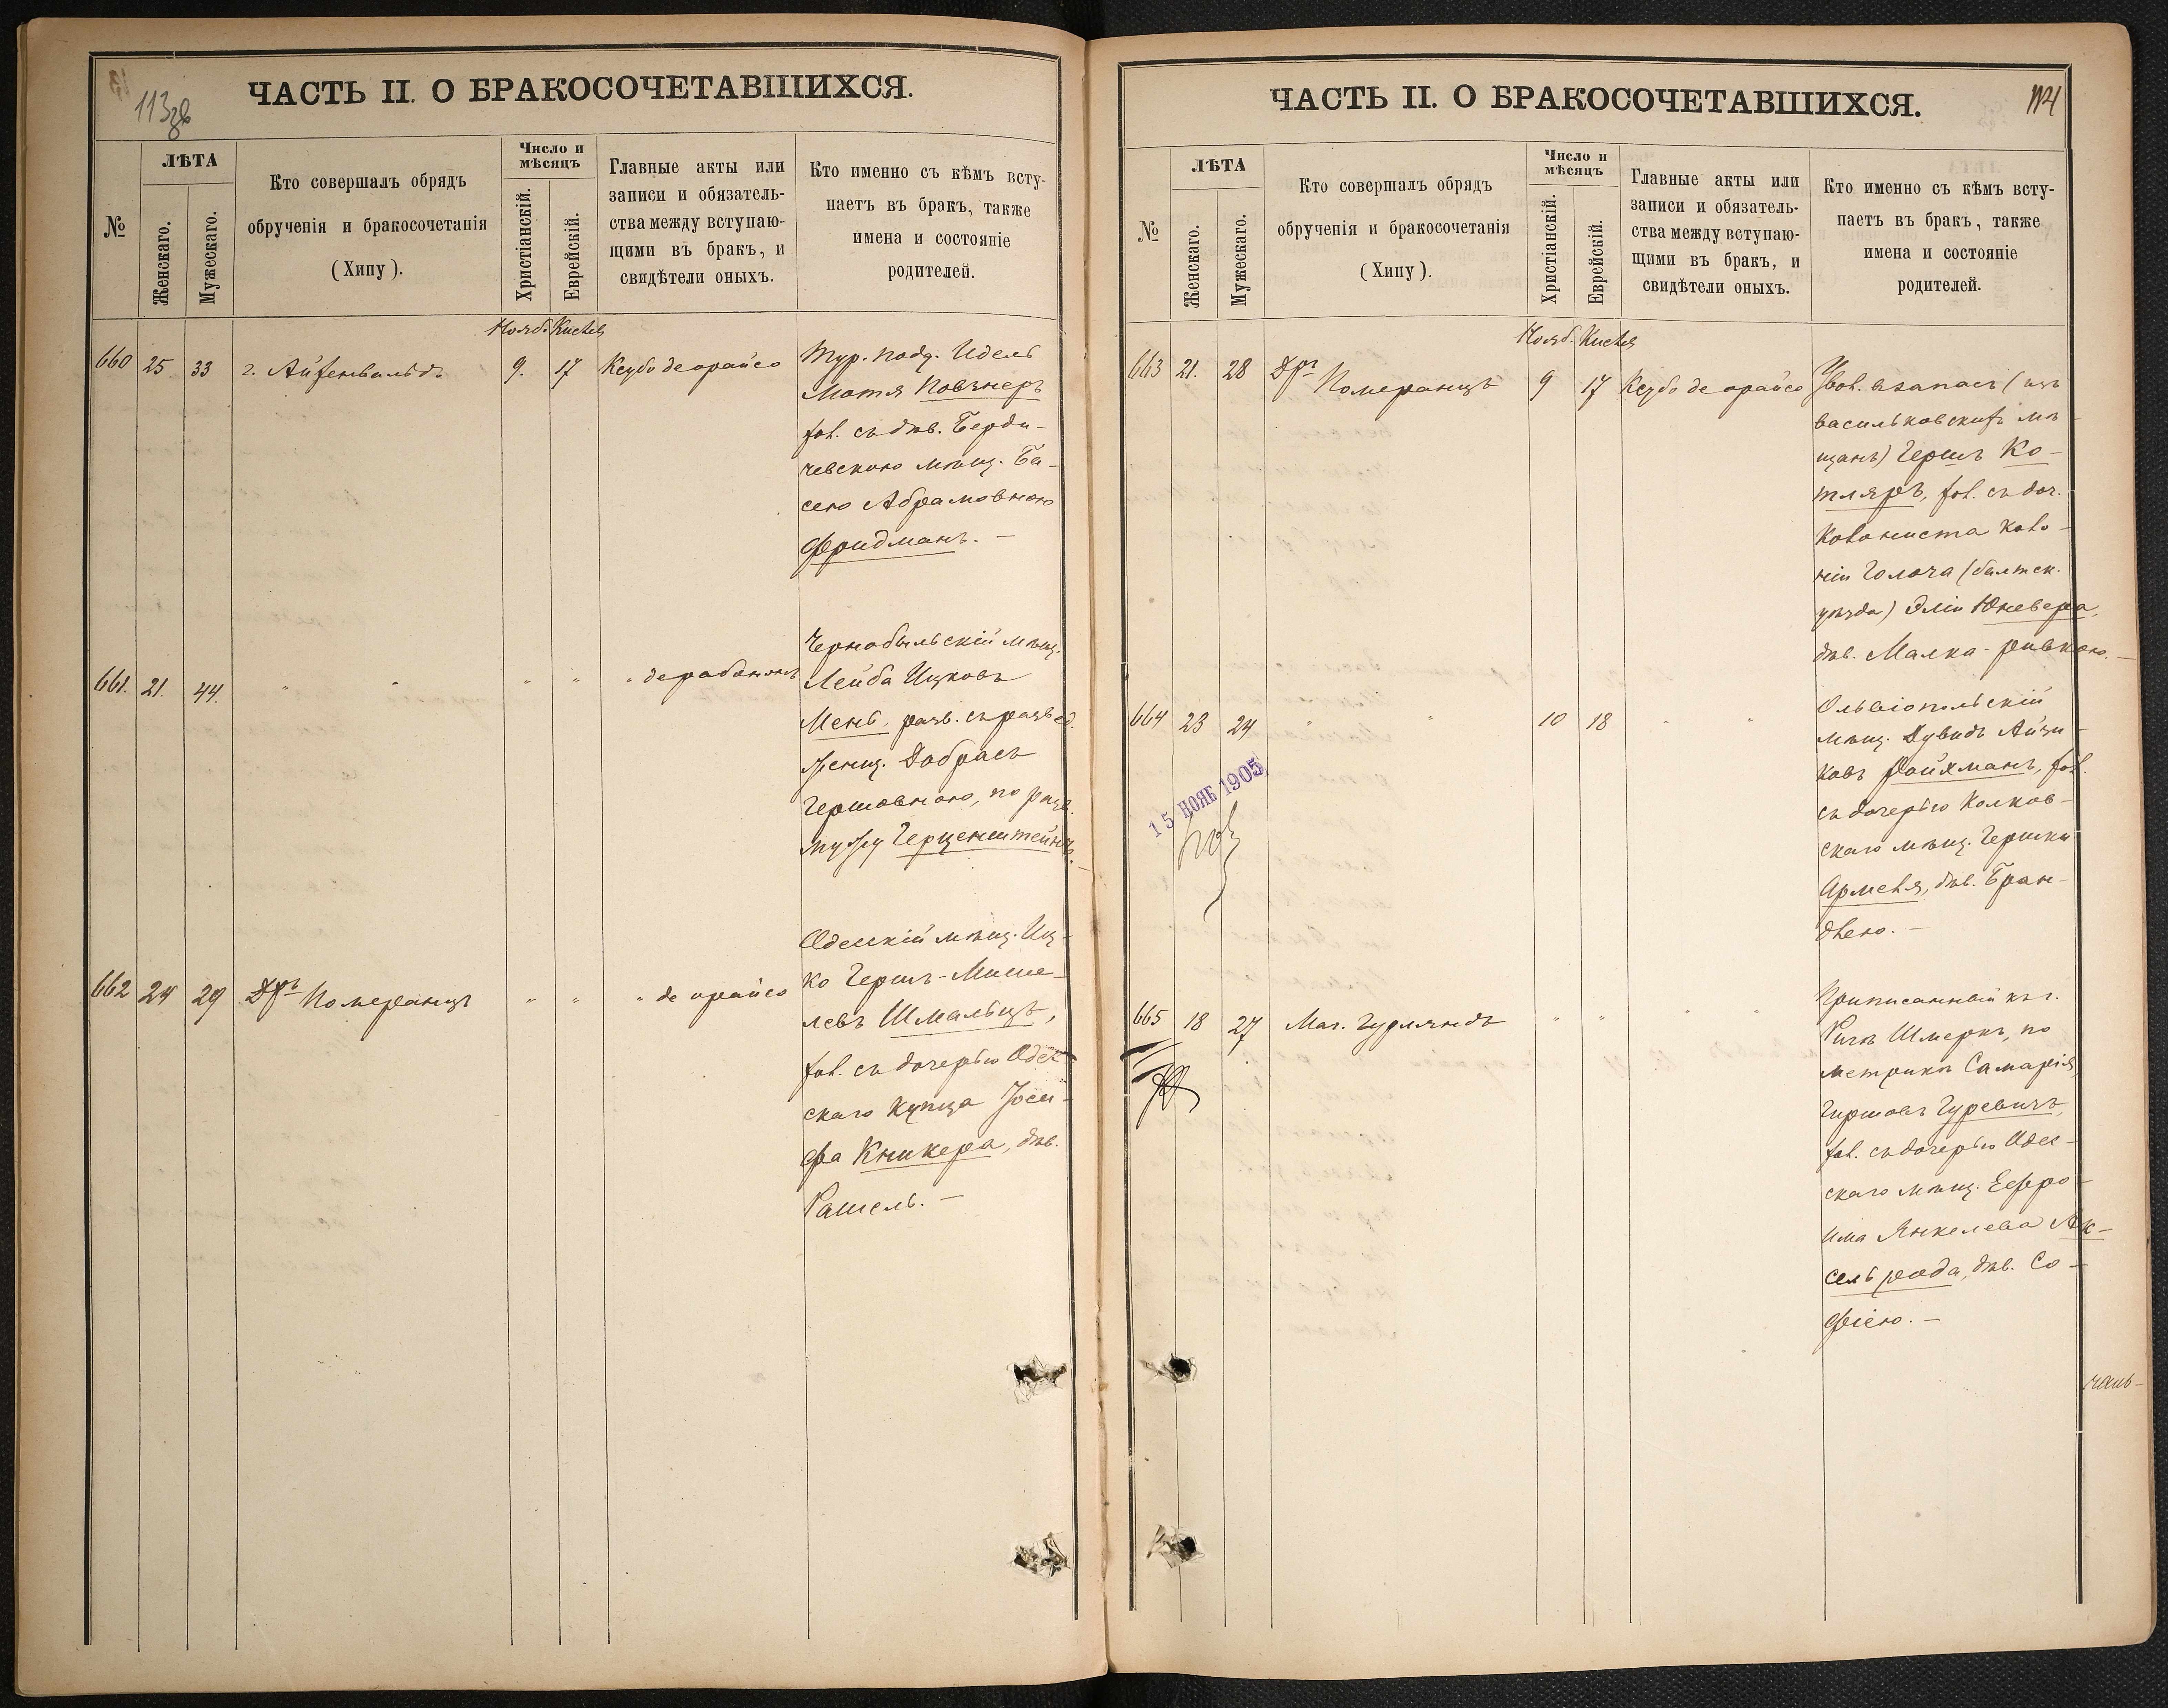 113об
ЧАСТЬ II. О БРАКОСОЧЕТАВШИХСЯ.
№
ЛѢТА
Женскаго.
Мужескаго.
Кто совершалъ обрядъ
обрученія и бракосочетанія
(Хипу).
Число и
мѣсяцъ
Христіанскій.
Еврейскій.
Главные акты или
записи и обязатель-
ства между вступаю-
щими въ бракъ, и
свидѣтели оныхъ.
Кто именно съ кѣмъ всту-
паетъ въ бракъ, также
имена и состояніе
родителей.
Нояб. Кислев
660 25 33 г. Айзенвальдъ 9. 17 Ксубо де орайсо
Тур. подд. Идель
Мотя Повзнеръ
хол. съ дѣв. Берди-
чевскою мѣщ. Ба-
сею Абрамовною
Фридманъ. —
661. 21. 44. " " " " " дерабононъ
Чернобыльскій мѣщ.
Лейба Ицковъ
Мень, разв. съ развед.
женщ. Добрась
Гершовною, по разв.
мужу Герценштейнъ. —
662 24 29 Дръ Померанцъ " " " де орайсо
Одесскій мѣщ. Иц-
ко Гершъ-Мише-
левъ Шмальцъ,
хол. съ дочерью Одес-
скаго купца Іоси-
фа Кникера, дѣв.
Рашель. —
114
ЧАСТЬ II. О БРАКОСОЧЕТАВШИХСЯ.
№
ЛѢТА
Женскаго.
Мужескаго.
Кто совершалъ обрядъ
обрученія и бракосочетанія
(Хипу).
Число и
мѣсяцъ
Христіанскій.
Еврейскій.
Главные акты или
записи и обязатель-
ства между вступаю-
щими въ бракъ, и
свидѣтели оныхъ.
Кто именно съ кѣмъ всту-
паетъ въ бракъ, также
имена и состояніе
родителей.
Нояб. Кислев
663 21. 28 Дръ Померанцъ 9 17 Ксубо де орайсо
Увол. въ запасъ (изъ
васильковскихъ мѣ-
щанъ) Гершъ Ко-
тляръ, хол. съ доч.
колониста коло-
ніи Голоча (балтск.
уѣзда) Эліи Юневера,
дѣв. Малка-Ривкою. —
664 23 24 " " 10 18 " "
Ольвіопольскій
мѣщ. Дувидъ Айзи-
ковъ Ройхманъ, хол.
съ дочерью Колков-
скаго мѣщ. Гершки
Армеля, дѣв. Бран-
длею. —
15 НОЯБ 1905
665 18 27 Маг. Гурляндъ " " " "
Приписанный къ г.
Ригѣ Шмерко, по
метрикѣ Самарія,
Гиршовъ Гуревичъ,
хол. съ дочерью Одес-
скаго мѣщ. Ефро-
има Янкелева Ак-
сельрода, дѣв. Со-
фіею. —